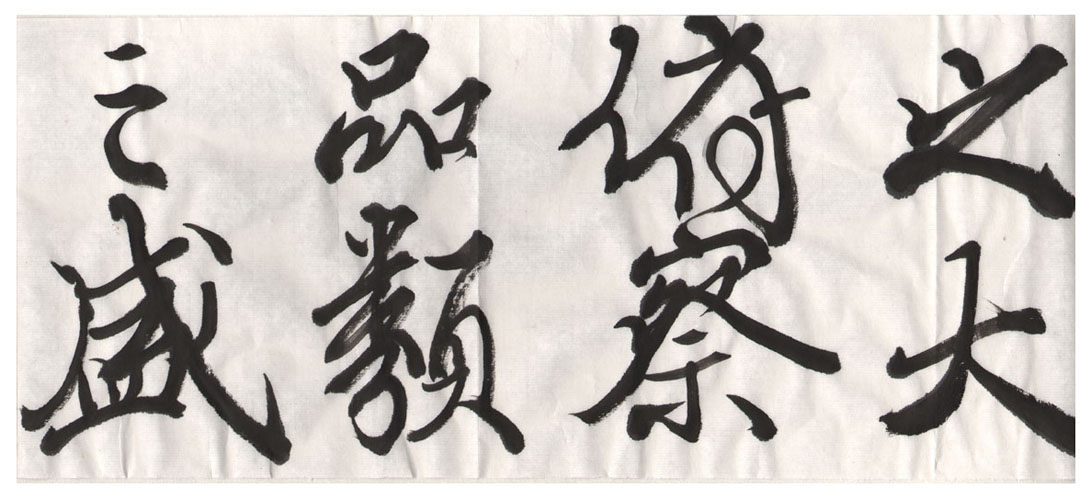 之大
俯察
品類
之盛